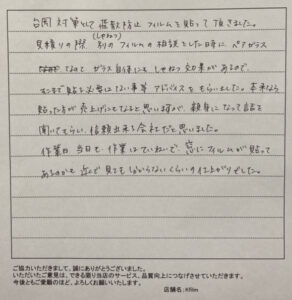 台風対策として飛散防止フィルムを貼って頂きました。
見積りの際 別の(しゃねつ)フィルムの相談をした時に ペアガラス
なので ガラス自体にもしゃねつ効果があるので、
むまで貼る必要はない事等 アドバイスをもらいました。本来なら
貼った方が売上げにもなると思いますが、親身になって話を
聞いてもらい、信頼出来る会社だと思いました。
作業日当日も、作業はていねいで、窓にフィルムが貼って
あるのかも近くで見てもわからないくらいの仕上がりでした。
ご協力いただきまして、誠にありがとうございました。
いただいたご意見は、できる限り当店のサービス、品質向上につなげさせていただきます。
今後ともご愛顧のほど、よろしくお願いいたします。
店舗名:Kfilm